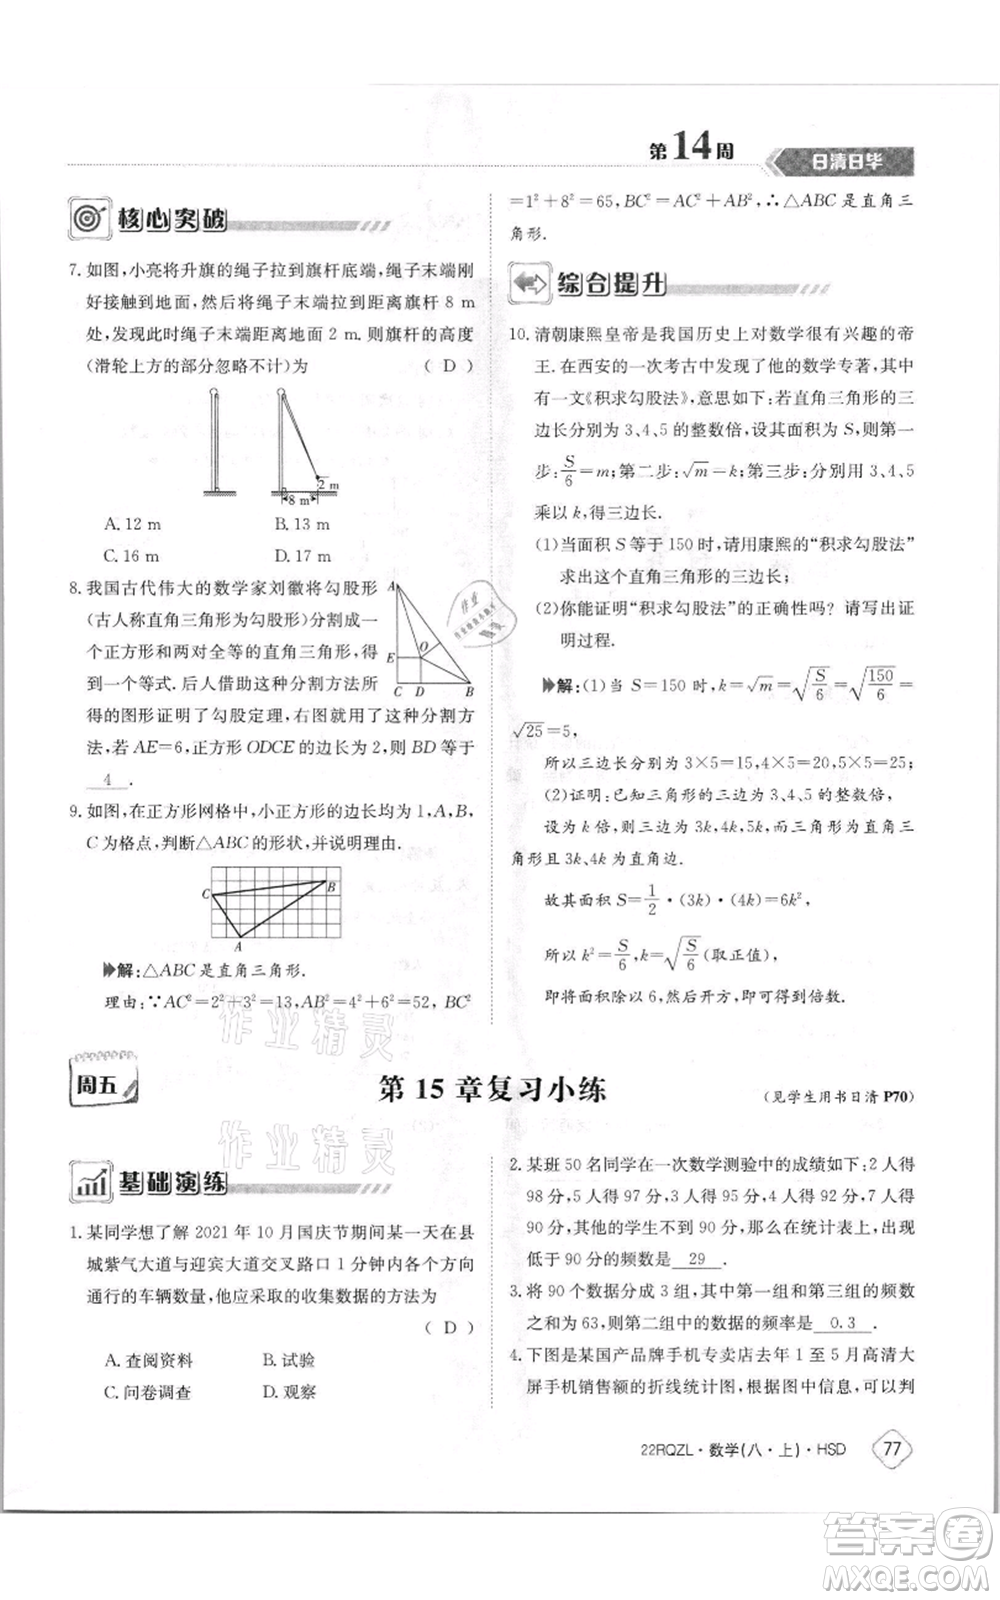 第14周
日清日毕
核心突破
7. 如图,小亮将升旗的绳子拉到旗杆底端,绳子末端刚
好接触到地面,然后将绳子末端拉到距离旗杆 8 m
处,发现此时绳子末端距离地面 2 m. 则旗杆的高度
(滑轮上方的部分忽略不计)为 ( D )
2 m
8 m
A. 12 m B. 13 m
C. 16 m D. 17 m
8. 我国古代伟大的数学家刘徽将勾股形
(古人称直角三角形为勾股形)分割成
一个正方形和两对全等的直角三角形,
得到一个等式. 后人借助这种分割方法所
得的图形证明了勾股定理,右图就用了这种分割方
法,若 AE=6,正方形 ODCE 的边长为 2,则 BD 等于
4 .
A
O
E
C D B
9. 如图,在正方形网格中,小正方形的边长均为 1,A、B、
C 为格点,判断△ABC 的形状,并说明理由.
B
C
A
解:△ABC 是直角三角形.
理由:∵AC²=2²+3²=13,AB²=4²+6²=52, BC²
=1²+8²=65,BC²=AC²+AB²,∴△ABC 是直角三
角形.
综合提升
10. 清朝康熙皇帝是我国历史上对数学很有兴趣的帝
王. 在西安的一次考古中发现了他的数学专著,其中
有一文《积求勾股法》,意思如下:若直角三角形的三
边长分别为 3、4、5 的整数倍,设其面积为 S,则第一
步:S/6=m;第二步:√m=k;第三步:分别用 3、4、5
乘以 k,得三边长.
(1)当面积 S 等于 150 时,请用康熙的“积求勾股法”
求出这个直角三角形的三边长;
(2)你能证明“积求勾股法”的正确性吗? 请写出证
明过程.
解:(1)当 S=150 时,k=√m=√(S/6)=√(150/6)=
√25=5,
所以三边长分别为 3×5=15,4×5=20,5×5=25;
(2)证明:已知三边为 3、4、5 的整数倍,
设为 k 倍,则三边为 3k,4k,5k,而三角形为直角三
角形且 3k,4k 为直角边.
故其面积 S=1/2·(3k)·(4k)=6k²,
所以 k²=S/6,k=√(S/6)(取正值),
即将面积除以 6,然后开方,即可得到倍数.
周五
第 15 章复习小练
(见学生用书日清 P70)
基础演练
1. 某同学想了解 2021 年 10 月国庆节期间某一天在县
城紫气大道与迎宾大道交叉路口 1 分钟内各个方向
通行的车辆数量,他应采取的收集数据的方法为
( D )
A. 查阅资料 B. 试验
C. 问卷调查 D. 观察
2. 某班 50 名同学在一次数学测验中的成绩如下:2 人得
98 分,5 人得 95 分,6 人得 92 分,8 人得 91 分,8 人得
90 分,其他的学生不到 90 分,那么在统计表上,出现
低于 90 分的频数是 29 .
3. 将 90 个数据分成 3 组,其中第一组和第三组的频数
之和为 63,则第二组中的数据的频率是 0.3 .
4. 下图是某国产品牌手机专卖店去年 1 至 5 月高清大
屏手机销售额的折线统计图,根据图中信息,可以判
22RQZL·数学(八·上)·HSD
77
作业精灵
作业精灵
答案卷
MXQE.COM